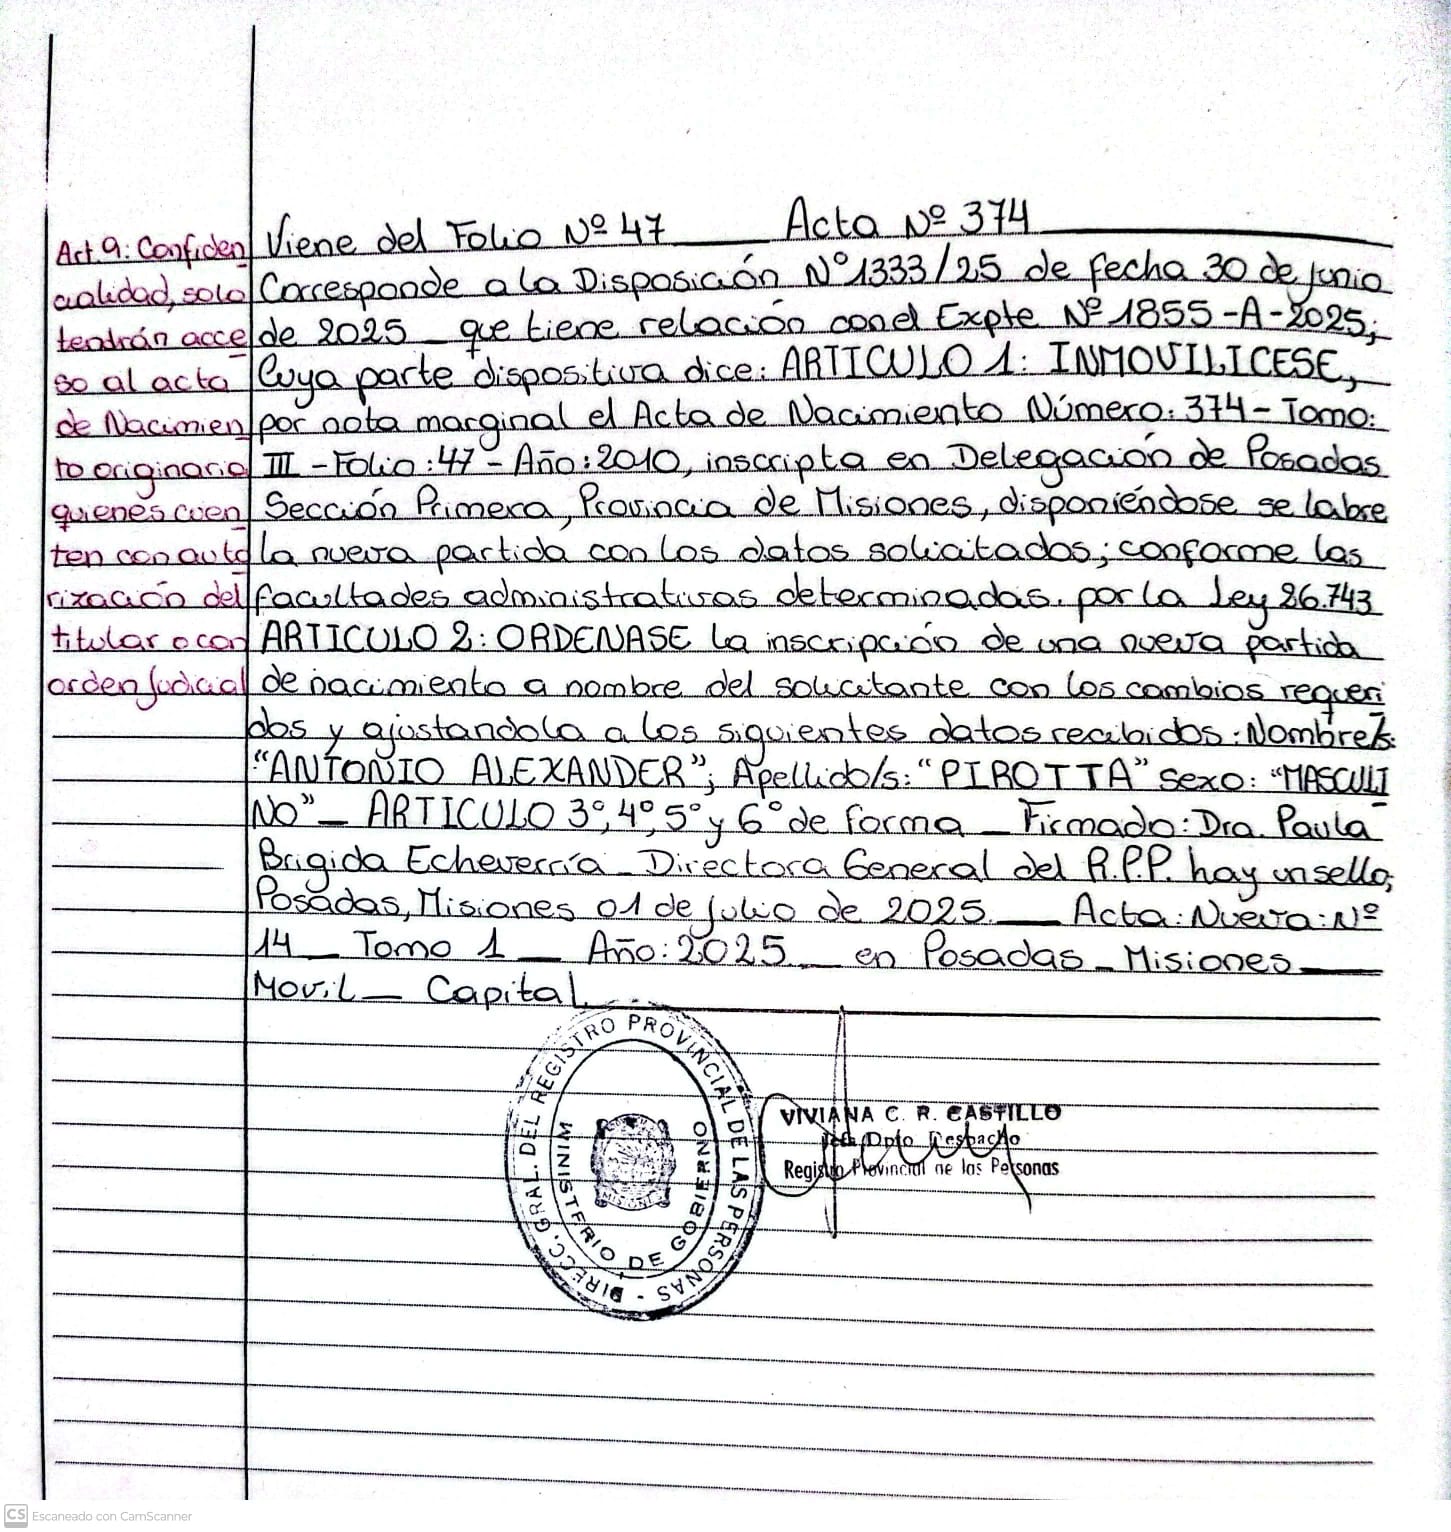 Viene del Folio Nº 47 Acta Nº 374
Corresponde a la Disposición Nº 1333/25 de fecha 30 de junio
de 2025 que tiene relación con el Expte Nº 1855-A-2025;
Cuya parte dispositiva dice: ARTICULO 1: INMOVILICESE,
por nota marginal el Acta de Nacimiento Número: 374- Tomo:
III - Folio: 47 - Año: 2010, inscripta en Delegación de Posadas
Sección Primera, Provincia de Misiones, disponiéndose se labre
la nueva partida con los datos solicitados; conforme las
facultades administrativas determinadas. por la Ley 26.743
ARTICULO 2: ORDENASE la inscripción de una nueva partida
de nacimiento a nombre del solicitante con los cambios requeri
dos y ajustandola a los siguientes datos recibidos: Nombre/s:
"ANTONIO ALEXANDER"; Apellido/s: "PIROTTA" sexo: "MASCULI
NO" _ ARTICULO 3º, 4º, 5º y 6º de forma _ Firmado: Dra. Paula
Brigida Echeverría _ Directora General del R.P.P. hay un sello;
Posadas, Misiones 01 de Julio de 2025. _ Acta: Nueva: Nº
14 _ Tomo 1 _ Año: 2025 _ en Posadas _ Misiones
Movil _ Capital.
Art. 9: Confiden
cialidad, solo
tendrán acce
so al acta
de Nacimien
to originaria
quienes cuen
ten con auto
rización del
titular o con
orden Judicial
DIRECC. GRAL. DEL REGISTRO PROVINCIAL DE LAS PERSONAS -
MINISTERIO DE GOBIERNO
MISIONES
VIVIANA C. R. CASTILLO
Jefa Dpto Despacho
Registro Provincial de las Personas
CS Escaneado con CamScanner